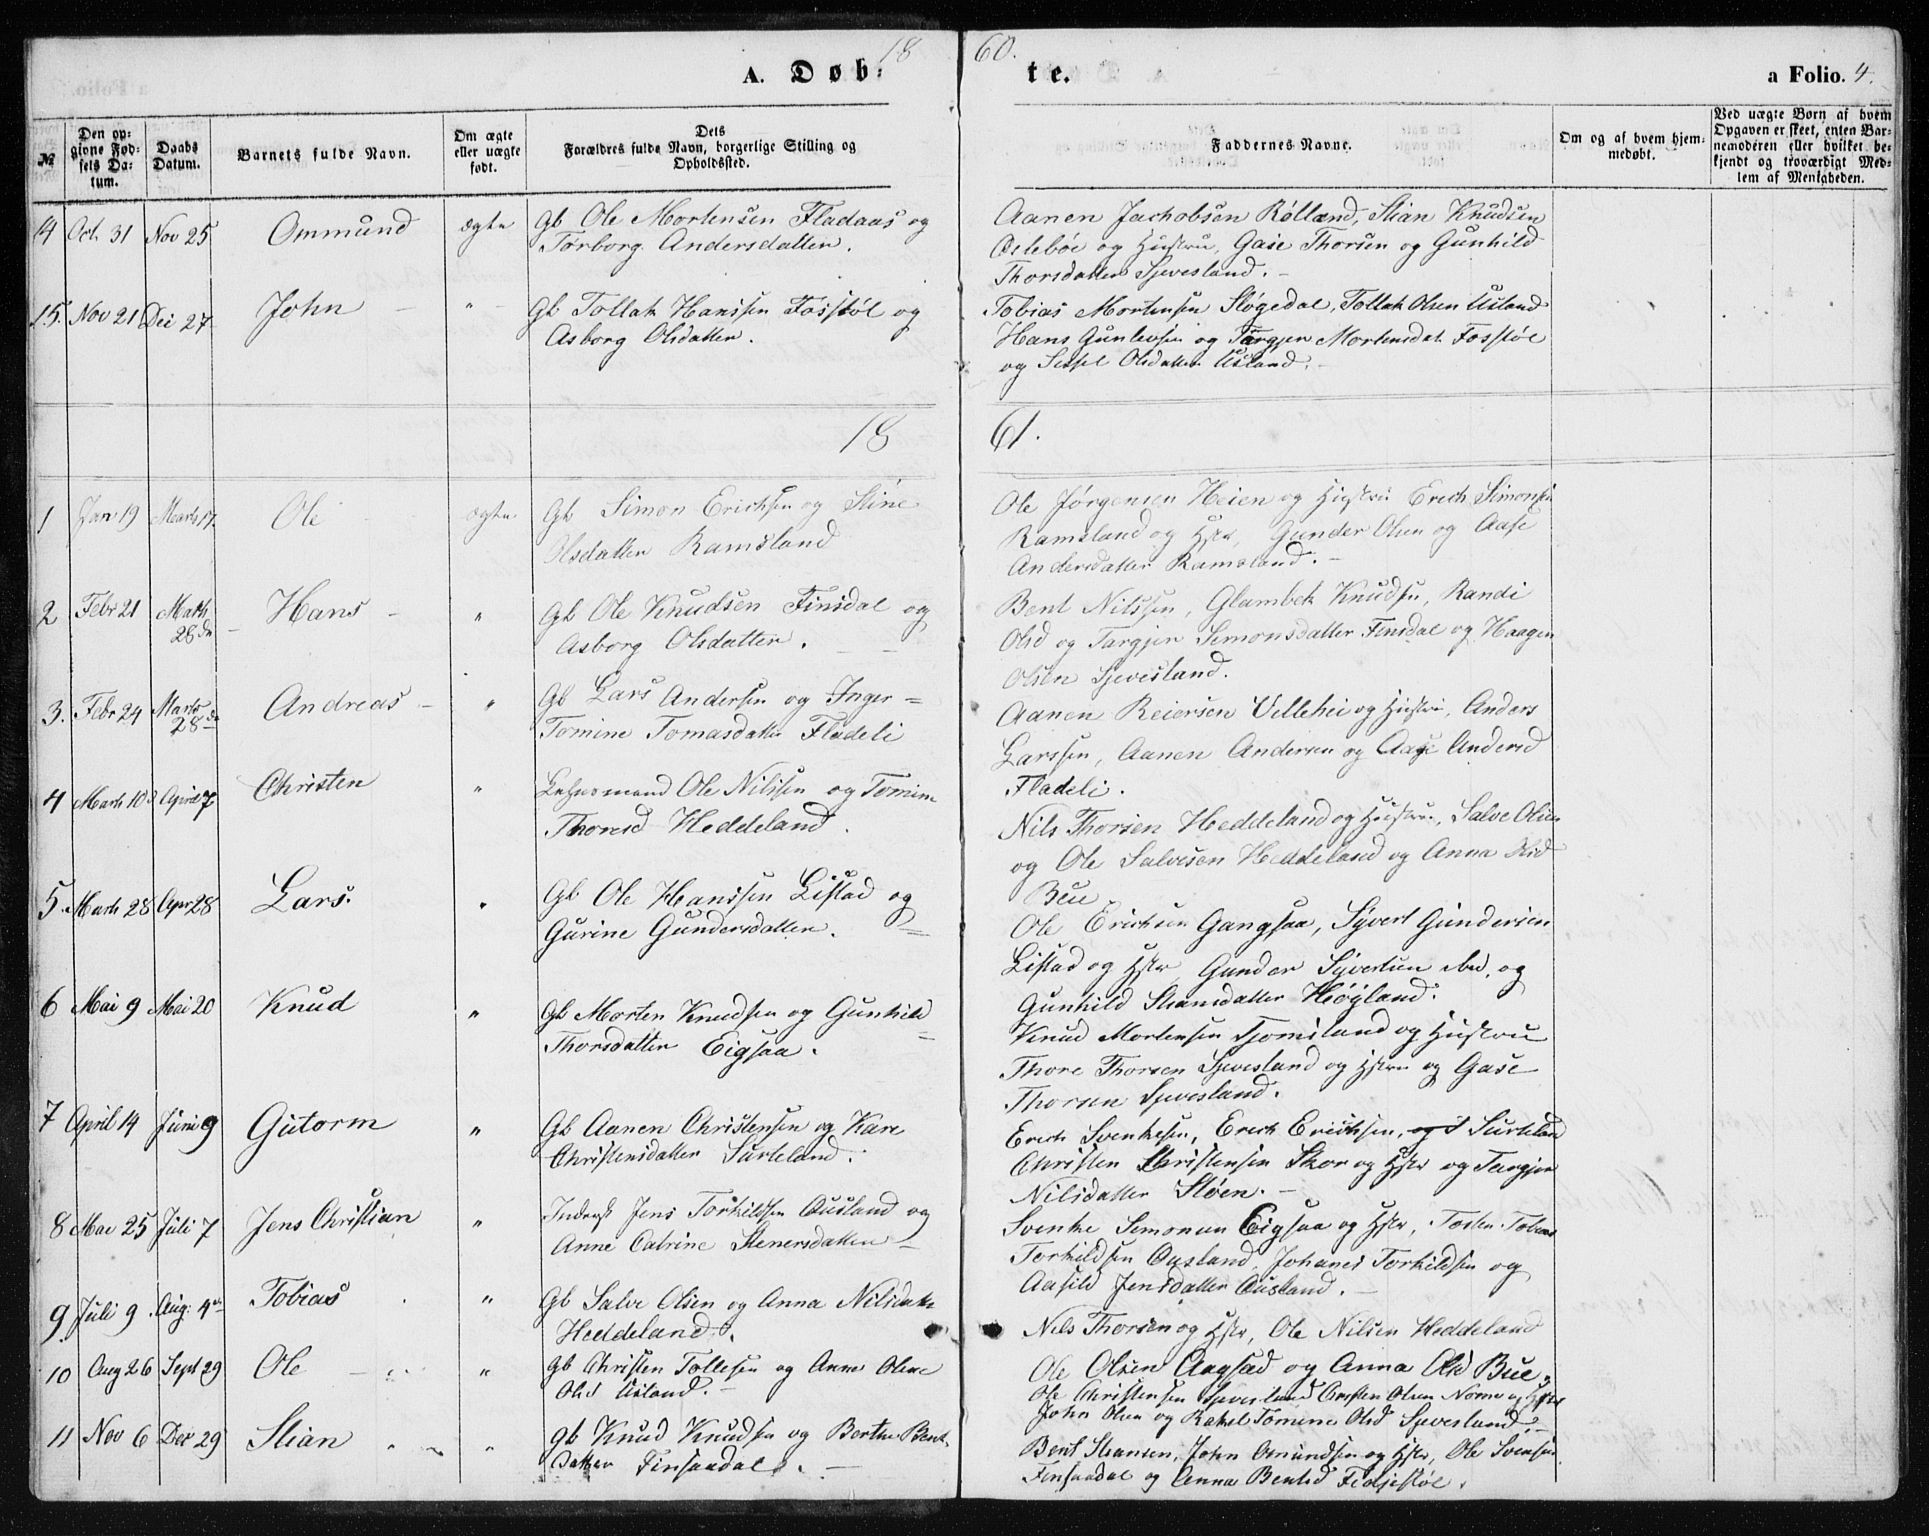 18
60.
A. Døb:
te.
a Folio. 4.
№
Den op-
givne Fød-
sels Da-
tum.
Daabs
Datum.
Barnets fulde Navn.
Om ægte
eller uægte
født.
Dets
Forældres fulde Navn, borgerlige Stilling og
Opholdssted.
Faddernes Navne.
Om og af hvem hjem-
medøbt.
Ved uægte Børn af hvem
Opgaven er skeet, enten Bar-
nemoderen eller hvilket be-
kjendt og troværdigt Med-
lem af Menigheden.
14 Oct. 31 Nov 25 Ommund ægte Gb Ole Mortensen Fladaas og
Torborg Andersdatter.
Aanen Jachobsen Røiland, Stian Knudsen
Ostebøe og Hustru, Gase Thorsen og Gunhild
Thorsdatter Sjevesland. -
15. Nov 21 Dec 27 John " Gb Tollak Hanssen Fosstøl og
Asborg Olsdatter.
Tobias Mortensen Sløgedal, Tollak Olsen Usland
Hans Gunlevsen og Targjer Mortensdat. Fosstøl
og Sissel Olsdatter Usland. -
18
61.
1 Jan 19 Marts 17. Ole ægte Gb Simon Erichsen og Stine
Olsdatter Ramsland
Ole Jørgensen Heien og Hustru Erich Simonsen
Ramsland og Hstr, Gunder Olsen og Aase
Andersdatter Ramsland. -
2 Febr 21 Marts
28de Hans - " Gb Ole Knudsen Finsdal og
Asborg Olsdatter.
Bent Nilssen, Glambek Knudsen, Randi
Olsd og Targjer Simonsdatter Finsdal og Haagen
Olsen Sjevesland.
3. Febr 24 Marts
28de Andreas - " Gb Lars Andersen og Inger=
Tomine Tomasdatter Fladeli
Aanen Reiersen Vellehei og Hustru, Anders
Larssen, Aanen Andersen og Aase Andersd
Fladeli.
4 Marts 10 April 7 Christen " Lehnsmand Ole Nilssen og Tomine
Thoresd Heddeland.
Nils Thorsen Heddeland og Hustru, Salve Olsen
og Ole Salvesen Heddeland og Anna Olsd
Bue
5. Marts 28 Apr 28 Lars. " Gb Ole Hanssen Listad og
Gurine Gundersdatter.
Ole Erichsen Gangsaa, Syvert Gundersen
Listad og Hstr Gunder Syvertsen ibd, og
Gunhild Stiansdatter Høyland.
6 Mai 9 Mai 20 Knud " Gb Morten Knudsen og Gunhild
Thorsdatter Eigsaa.
Knud Mortensen Tjomsland og Hustru
Thore Thorsen Sjevesland og Hstru og Gase
Thorsen Sjevesland.
7 April 14 Juni 9 Gutorm " Gb Aanen Christensen og Kare
Christensdatter Surteland.
Erich Svenkesen, Erich Erichsen, Surteland
Christen Christensen Skor og Hstr og Targjer
Nilsdatter Støen. -
8 Mai 25 Juli 7 Jens Christian " Inderst Jens Torkildsen Ousland og
Anne Catrine Stenersdatter
Svenke Semonsen Eigsaa og Hstr, Tosten Tobias
Torkildsen Ousland, Johanes Torkildsen og
Aasild Jensdatter Ousland. -
9 Juli 9 Aug: 4de Tobias " Gb Salve Olsen og Anna Nilsdatter
Heddeland.
Nils Thorsen og Hstr, Ole Nilsen Heddeland
Ole Olsen Aagsad og Anna Olsd Bue.
10 Aug 26 Sept 29 Ole " Gb Christen Tollefsen og Anne Oline
Olsd Usland. -
Ole Christensen Sjevesland Christen Olsen Nome og Hstr
John Olsen og Rakel Tomine Olsd Sjevesland. -
11 Nov 6 Dec 29 Stian " Gb Knud Knudsen og Berthe Bent-
datter Finsaadal. -
Bent Stiansen, John Omundsen og Hstr, Ole Svensen
Finsaadal og Anna Bentsd Fedjestøl.